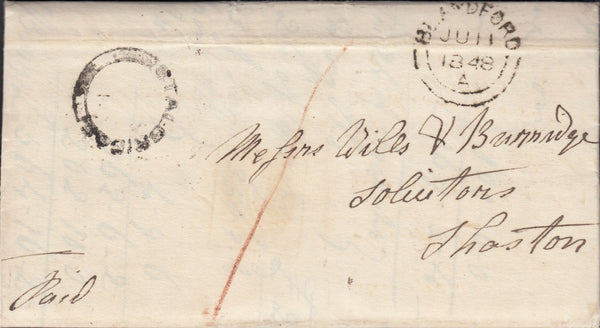 BLANDFORD
JU 11
1848
A
Messrs Wills & Burridge
Solicitors
Shaston
Paid